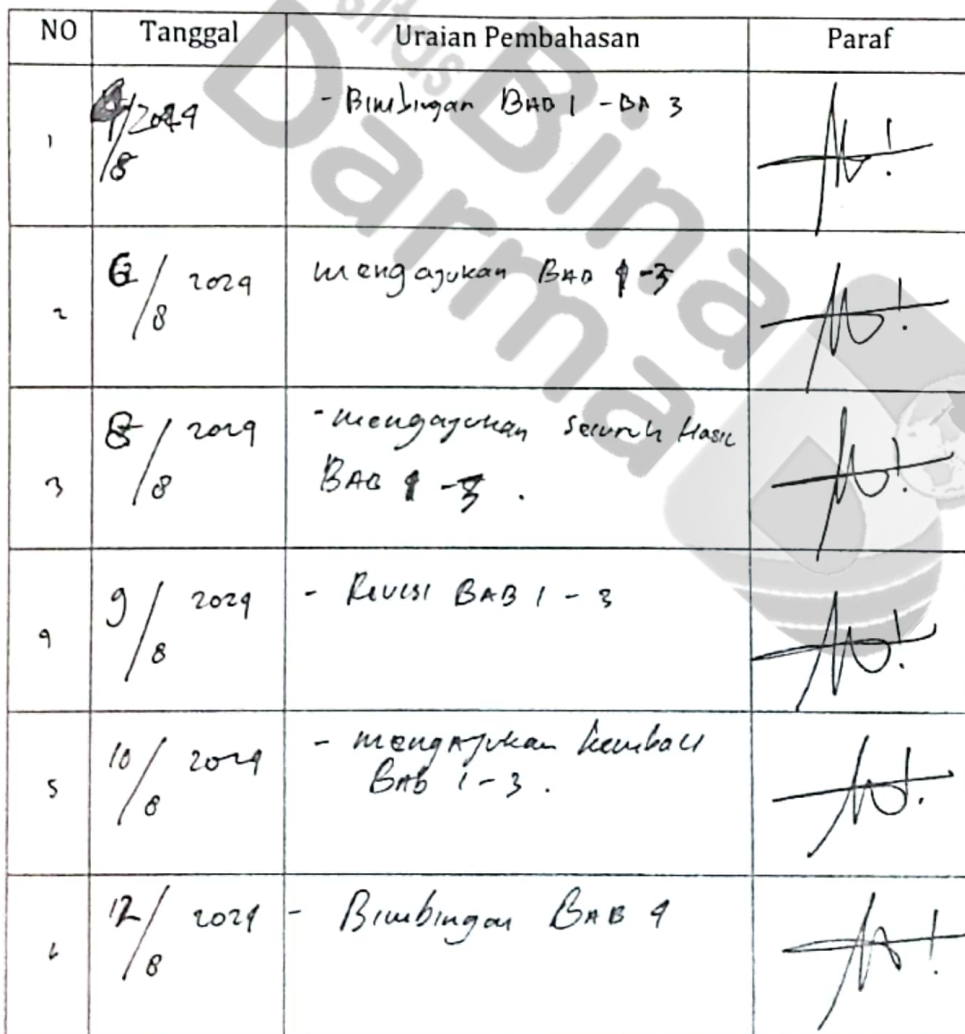 NO Tanggal Uraian Pembahasan Paraf
1 /2024 - Bimbingan BAB 1 - BA 3
/8
2 6/8 2024 mengajukan BAB 1-3
3 8/8 2024 - mengajukan seluruh Hasil
BAB 1-3 .
4 9/8 2024 - Revisi BAB 1 - 3
5 10/8 2024 - mengajukan kembali
BAB 1-3 .
6 12/8 2024 - Bimbingan BAB 4
Bina
Darma